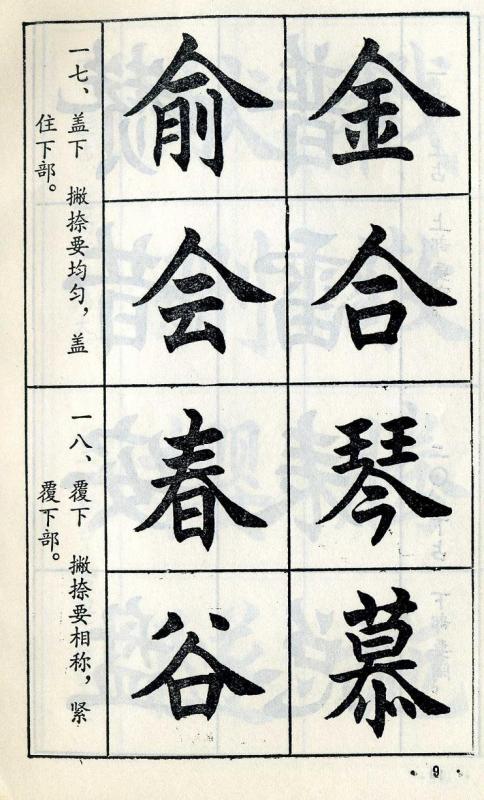 金合
俞会
一七、盖下 撇捺要均匀，盖
住下部。
琴慕
春谷
一八、覆下 撇捺要相称，紧
覆下部。
· 9 ·